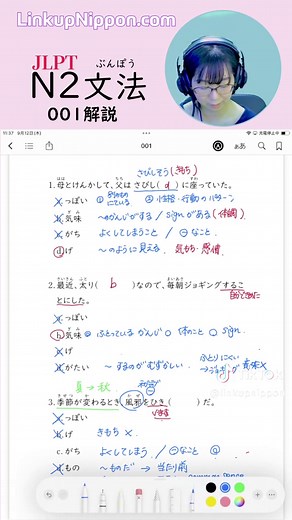 LinkupNippon.com
JLPT ぶんぽう
N2文法
001解説
11:37 9月12日(木)
001
さびしそう(きもち)
1.母とけんかして、父はさびし( d )に座っていた。
a.っぽい
b.気味 ～かんじがする / signがある(体調)
c.がち よくしてしまう / ⊖なこと
d.げ ～のように見える 気もち・感情
2.最近、太り( b )なので、毎朝ジョギングするこ
とにした。
a.っぽい
b.気味 ふとっているかんじ 体のこと sign
c.げ
d.がたい ～するのがむずかしい
夏→秋
3.季節が変わるとき、風邪をひき( )だ。
a.っぽい
b.げ きもち×
c.がち よくしてしまう ⊖なこと
d.もの ～ものだ → 当たり前